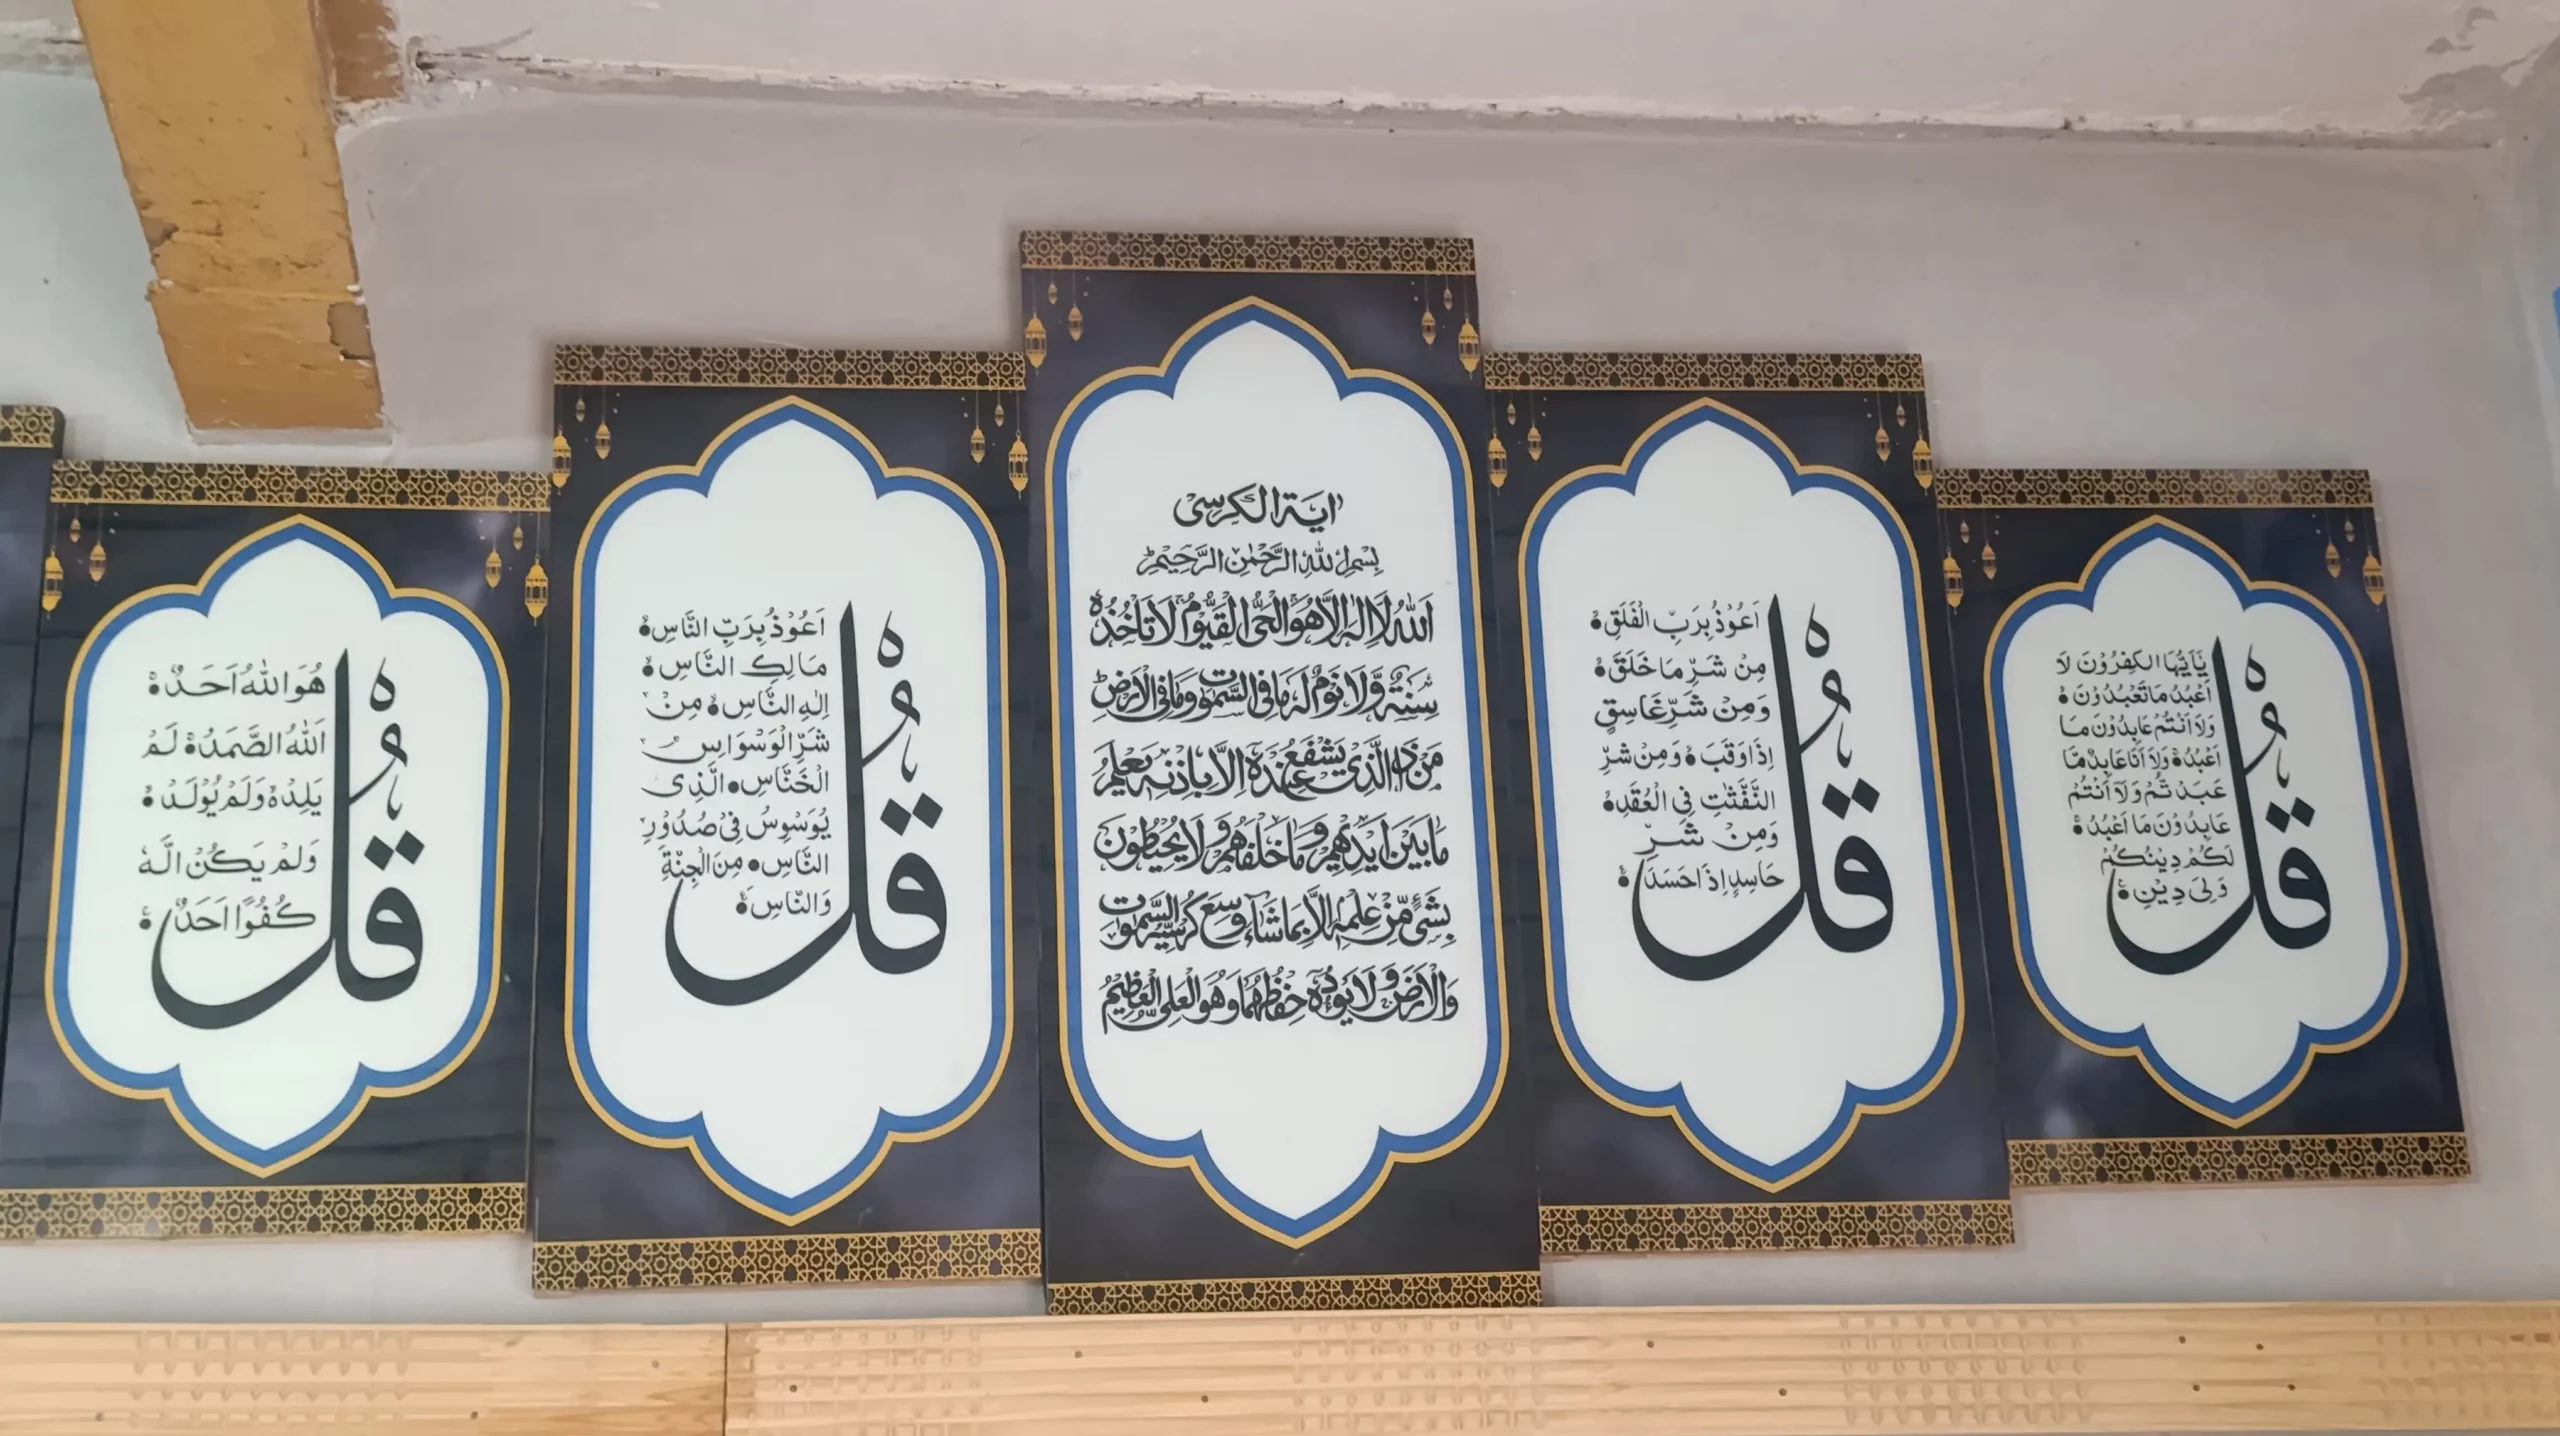 قُلْ
يَا أَيُّهَا الكٰفِرُوْنَ لَا
اَعْبُدُ مَا تَعْبُدُوْنَ ۝
وَلَا اَنْتُمْ عَابِدُوْنَ مَا
اَعْبُدُ ۝ وَلَا اَنَا عَابِدٌ مَّا
عَبَدْتُّمْ وَلَا اَنْتُمْ
عَابِدُوْنَ مَا اَعْبُدُ ۝
لَكُمْ دِيْنُكُمْ
وَلِیَ دِيْنِ ۝
قُلْ
اَعُوْذُ بِرَبِّ الْفَلَقِ ۝
مِنْ شَرِّ مَا خَلَقَ ۝
وَمِنْ شَرِّ غَاسِقٍ
اِذَا وَقَبَ ۝ وَمِنْ شَرِّ
النَّفّٰثٰتِ فِی الْعُقَدِ ۝
وَمِنْ شَرِّ
حَاسِدٍ اِذَا حَسَدَ ۝
اٰیَة الكرسی
بِسْمِ اللهِ الرَّحْمٰنِ الرَّحِيْمِ
اَللّٰهُ لَا اِلٰهَ اِلَّا هُوَ الْحَیُّ الْقَيُّوْمُ لَا تَاْخُذُهٗ
سِنَةٌ وَّلَا نَوْمٌ لَهٗ مَا فِی السَّمٰوٰتِ وَمَا فِی الْاَرْضِ
مَنْ ذَا الَّذِیْ يَشْفَعُ عِنْدَهٗ اِلَّا بِاِذْنِهٖ يَعْلَمُ
مَا بَيْنَ اَيْدِيْهِمْ وَمَا خَلْفَهُمْ وَلَا يُحِيْطُوْنَ
بِشَیْءٍ مِّنْ عِلْمِهٖ اِلَّا بِمَا شَآءَ وَسِعَ كُرْسِيُّهُ السَّمٰوٰتِ
وَالْاَرْضَ وَلَا يَؤُدُهٗ حِفْظُهُمَا وَهُوَ الْعَلِیُّ الْعَظِيْمُ
قُلْ
اَعُوْذُ بِرَبِّ النَّاسِ ۝
مَالِكِ النَّاسِ ۝
اِلٰهِ النَّاسِ ۝ مِنْ
شَرِّ الْوَسْوَاسِ
الْخَنَّاسِ ۝ الَّذِی
يُوَسْوِسُ فِیْ صُدُوْرِ
النَّاسِ ۝ مِنَ الْجِنَّةِ
وَالنَّاسِ ۝
قُلْ
هُوَ اللهُ اَحَدٌ ۝
اَللهُ الصَّمَدُ ۝ لَمْ
يَلِدْ ۝ وَلَمْ يُوْلَدْ ۝
وَلَمْ يَكُنْ الَّهٗ
كُفُوًا اَحَدٌ ۝